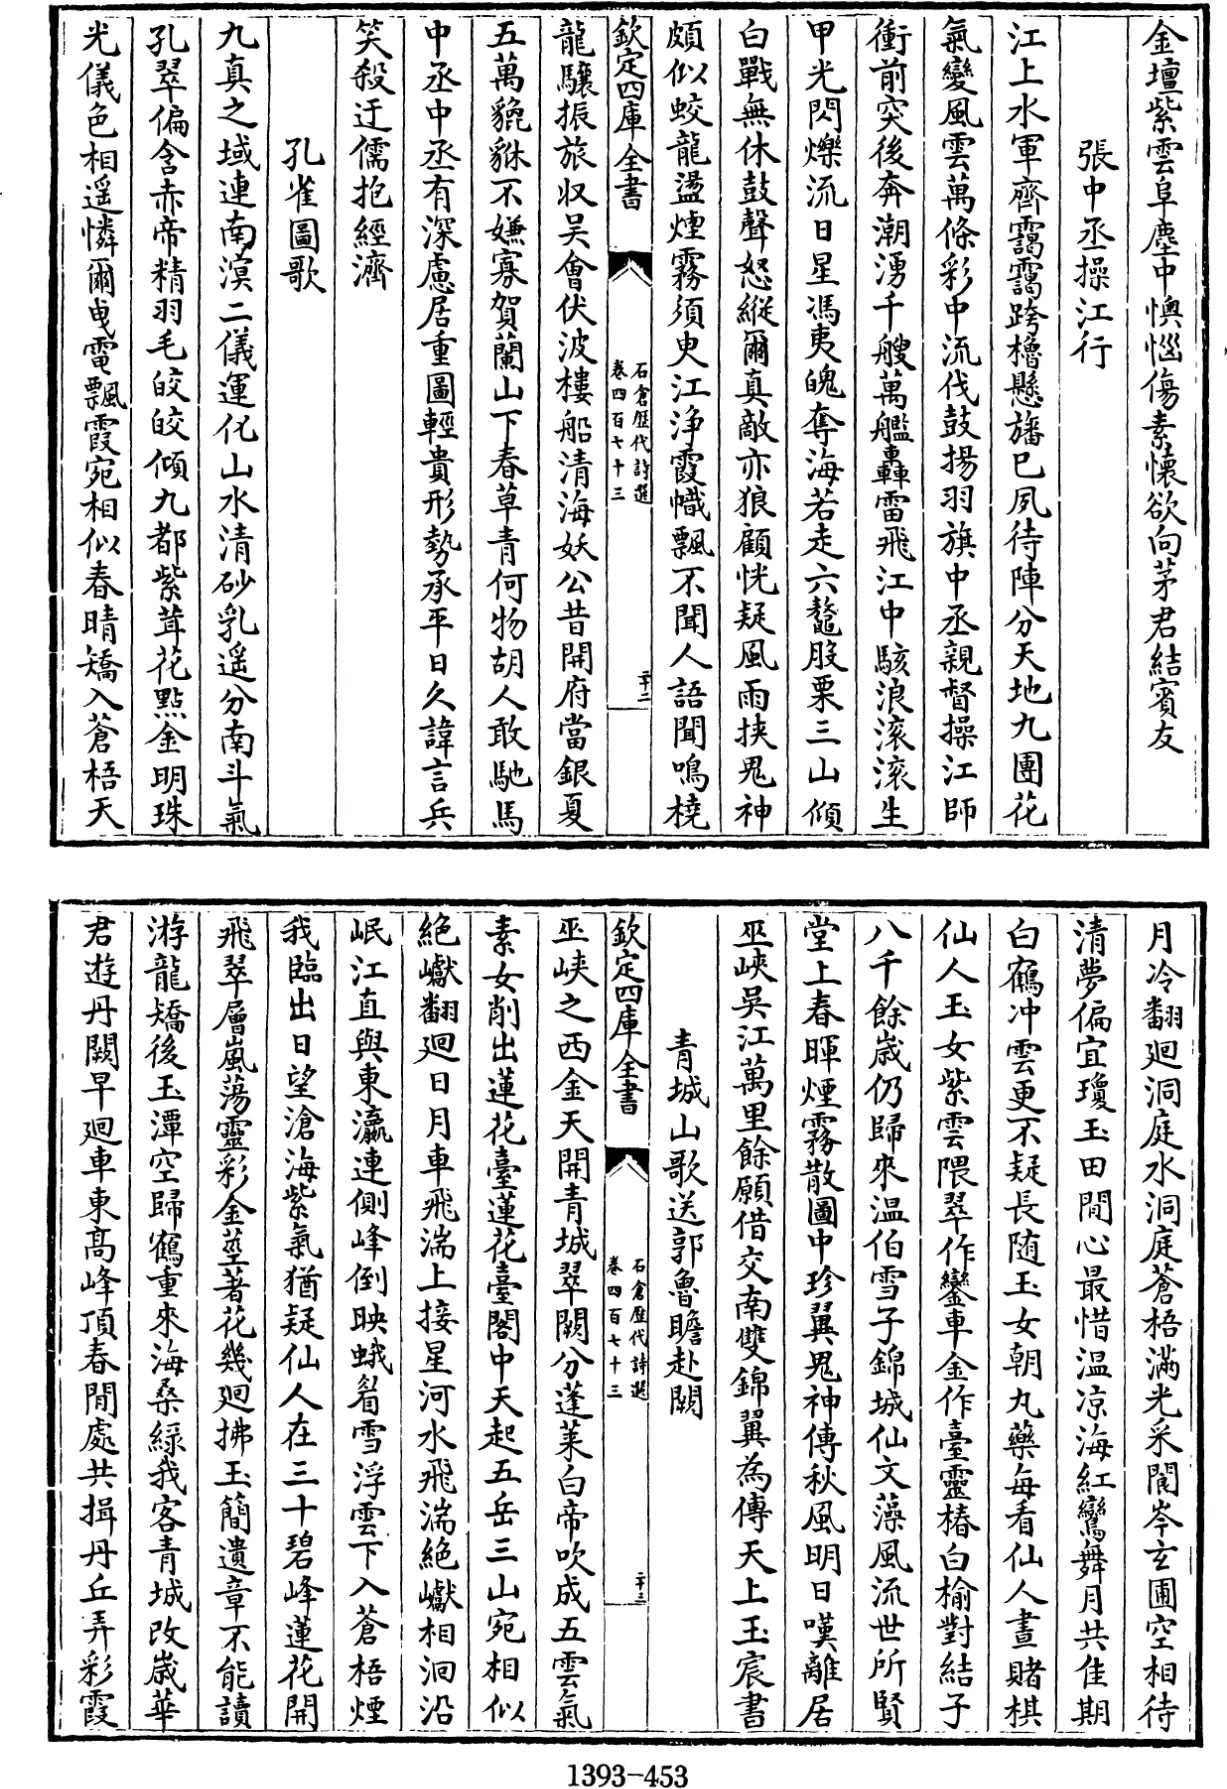 金壇紫雲阜塵中懊惱傷素懷欲向茅君結賓友
張中丞操江行
江上水軍齊靄靄跨櫓懸旛已夙待陣分天地九團花
氣變風雲萬條彩中流伐鼓揚羽旗中丞親督操江師
衝前突後奔潮湧千艘萬艦轟雷飛江中駭浪滚滚生
甲光閃爍流日星馮夷魄奪海若走六鼇股栗三山傾
白戰無休鼓聲怒縱爾真敵亦狼顧恍疑風雨挾鬼神
頗似蛟龍盪煙霧須臾江浄霞幟飄不聞人語聞鳴橈
欽定四庫全書
石倉歷代詩選
卷四百七十三
二十二
龍驤振旅収吴會伏波樓船清海妖公昔開府當銀夏
五萬貔貅不嫌寡賀蘭山下春草青何物胡人敢馳馬
中丞中丞有深慮居重圖輕貴形勢承平日久諱言兵
笑殺迂儒抱經濟
孔雀圖歌
九真之域連南溟二儀運化山水清砂乳遥分南斗氣
孔翠偏含赤帝精羽毛皎皎傾九都紫茸花點金明珠
光儀色相遥憐爾曳電飄霞宛相似春晴矯入蒼梧天
月冷翻廻洞庭水洞庭蒼梧滿光采閬岑玄圃空相待
清夢偏宜瓊玉田閒心最惜温凉海紅鸞舞月共佳期
白鶴冲雲更不疑長随玉女朝丸藥每看仙人晝賭棋
仙人玉女紫雲隈翠作鑾車金作臺靈椿白榆對結子
八千餘歳仍歸來温伯雪子錦城仙文藻風流世所賢
堂上春暉煙霧散圖中珍翼鬼神傳秋風明日嘆離居
巫峽吴江萬里餘願借交南雙錦翼為傳天上玉宸書
青城山歌送郭魯瞻赴闕
欽定四庫全書
石倉歷代詩選
卷四百七十三
二十三
巫峽之西金天開青城翠闕分蓬莱白帝吹成五雲氣
素女削出蓮花臺蓮花臺閣中天起五岳三山宛相似
絶巘翻廻日月車飛湍上接星河水飛湍絶巘相洄沿
岷江直與東瀛連側峰倒映蛾眉雪浮雲下入蒼梧煙
我臨出日望滄海紫氣猶疑仙人在三十碧峰蓮花開
飛翠層嵐蕩靈彩金莖著花幾廻拂玉簡遺章不能讀
游龍矯後玉潭空歸鶴重來海桑緑我客青城改歳華
君遊丹闕早廻車東髙峰頂春閒處共揖丹丘弄彩霞
1393-453